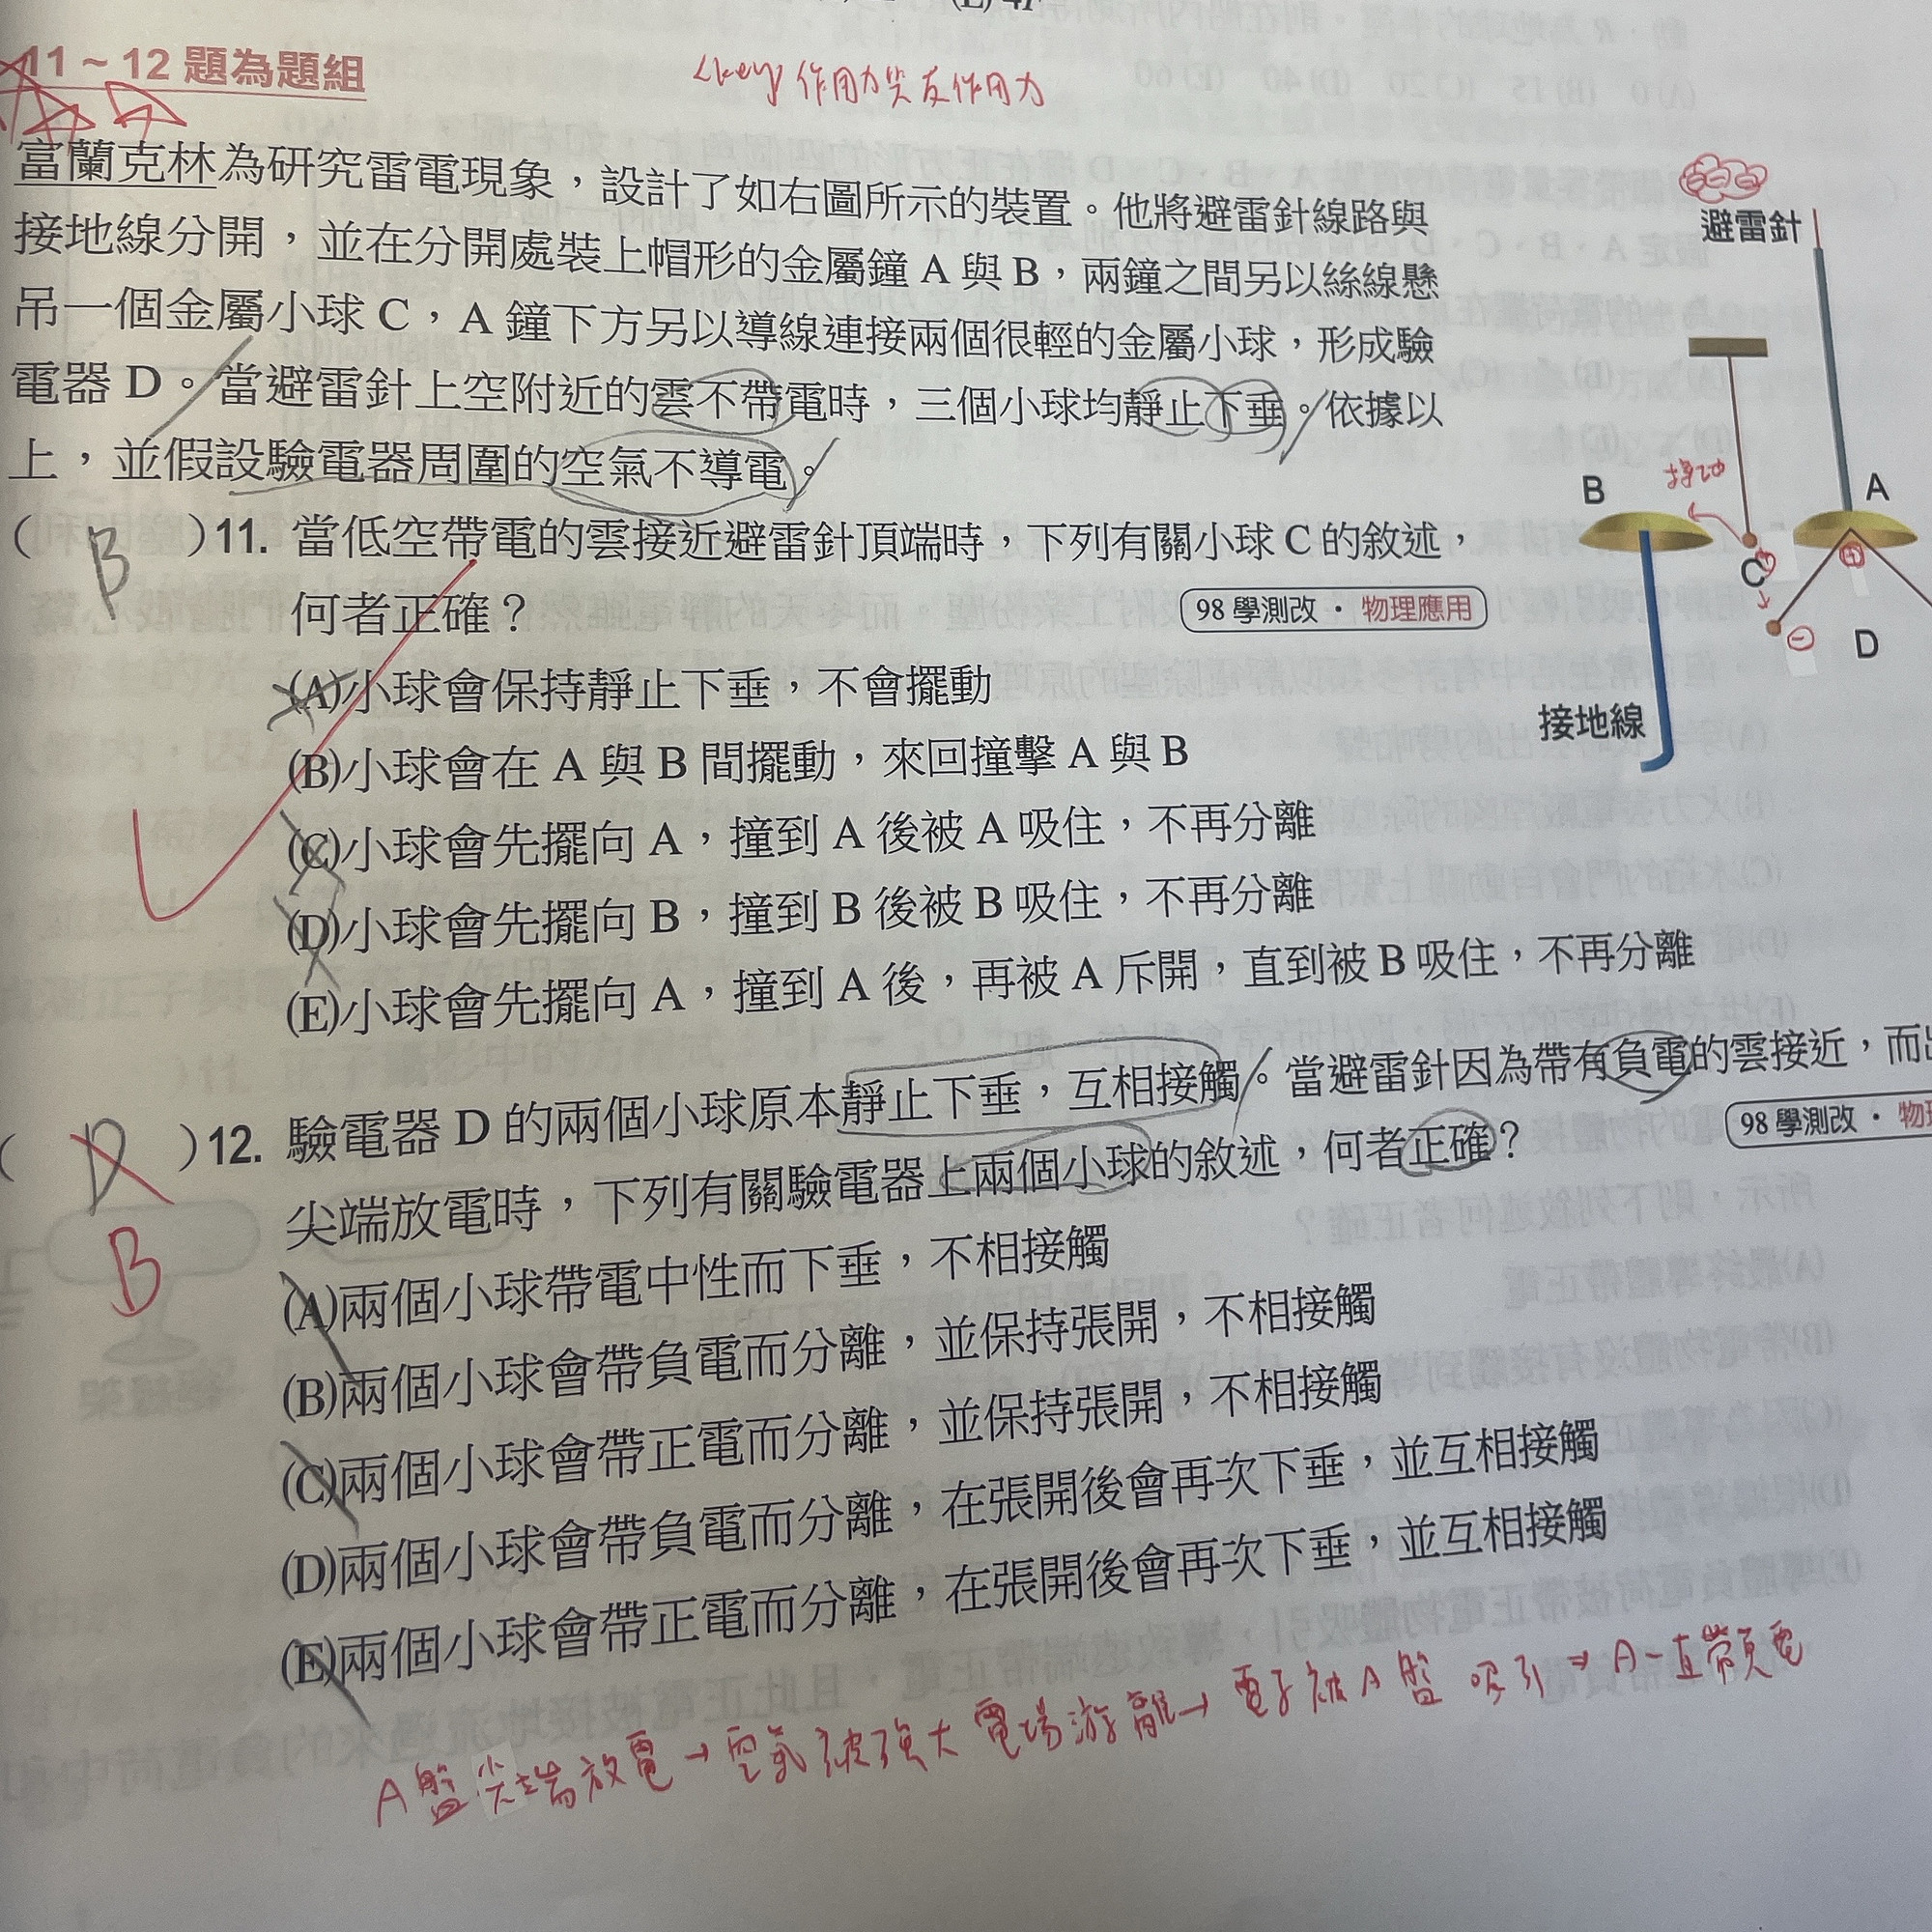 (E) 4F
11 ~ 12 題為題組
<key> 作用力與反作用力
富蘭克林為研究雷電現象，設計了如右圖所示的裝置。他將避雷針線路與
接地線分開，並在分開處裝上帽形的金屬鐘 A 與 B，兩鐘之間另以絲線懸
吊一個金屬小球 C，A 鐘下方另以導線連接兩個很輕的金屬小球，形成驗
電器 D。當避雷針上空附近的雲不帶電時，三個小球均靜止下垂。依據以
上，並假設驗電器周圍的空氣不導電。
避雷針
B
A
C
D
接地線
+
−
( B )11. 當低空帶電的雲接近避雷針頂端時，下列有關小球 C 的敘述，
何者正確？
98 學測改 · 物理應用
(A)小球會保持靜止下垂，不會擺動
(B)小球會在 A 與 B 間擺動，來回撞擊 A 與 B
(C)小球會先擺向 A，撞到 A 後被 A 吸住，不再分離
(D)小球會先擺向 B，撞到 B 後被 B 吸住，不再分離
(E)小球會先擺向 A，撞到 A 後，再被 A 斥開，直到被 B 吸住，不再分離
( D )12. 驗電器 D 的兩個小球原本靜止下垂，互相接觸。當避雷針因為帶有負電的雲接近，而
B
尖端放電時，下列有關驗電器上兩個小球的敘述，何者正確？
98 學測改 · 物
(A)兩個小球帶電中性而下垂，不相接觸
(B)兩個小球會帶負電而分離，並保持張開，不相接觸
(C)兩個小球會帶正電而分離，並保持張開，不相接觸
(D)兩個小球會帶負電而分離，在張開後會再次下垂，並互相接觸
(E)兩個小球會帶正電而分離，在張開後會再次下垂，並互相接觸
A盤尖端放電→空氣被強大電場游離→電子被A盤吸引⇒A一直帶負電